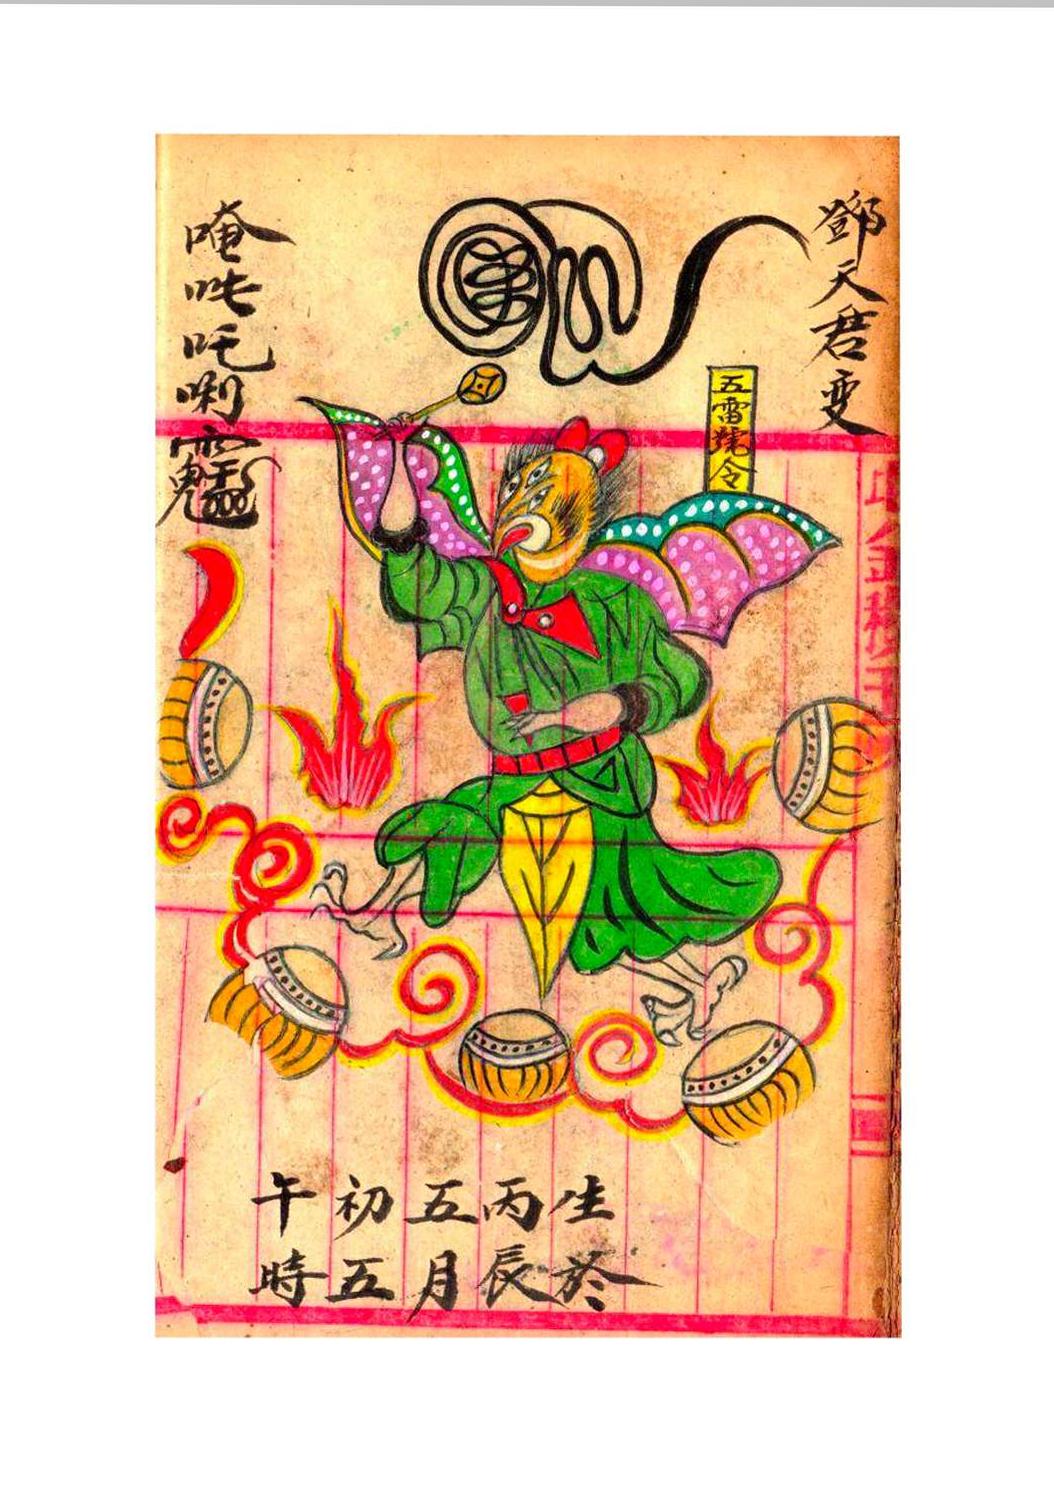 鄧天君变
五雷號令
唵吽吒唎
生於
丙辰
五月
初五
午時